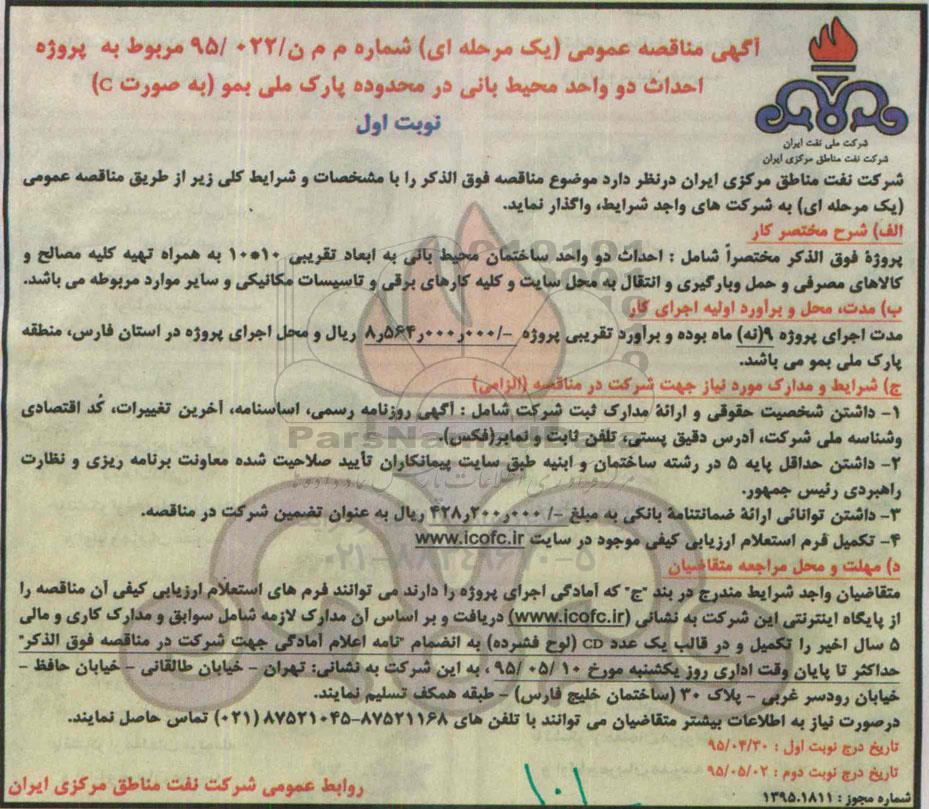 آگهی مناقصه عمومی (یک مرحله ای) شماره م م ن/۰۲۲ /۹۵ مربوط به پروژه
احداث دو واحد محیط بانی در محدوده پارک ملی بمو (به صورت C)
نوبت اول
شرکت ملی نفت ایران
شرکت نفت مناطق مرکزی ایران
شرکت نفت مناطق مرکزی ایران درنظر دارد موضوع مناقصه فوق الذکر را با مشخصات و شرایط کلی زیر از طریق مناقصه عمومی
(یک مرحله ای) به شرکت های واجد شرایط، واگذار نماید.
الف) شرح مختصر کار
پروژهٔ فوق الذکر مختصراً شامل : احداث دو واحد ساختمان محیط بانی به ابعاد تقریبی ۱۰*۱۰ به همراه تهیه کلیه مصالح و
کالاهای مصرفی و حمل وبارگیری و انتقال به محل سایت و کلیه کارهای برقی و تاسیسات مکانیکی و سایر موارد مربوطه می باشد.
ب) مدت، محل و برآورد اولیه اجرای کار
مدت اجرای پروژه ۹(نه) ماه بوده و برآورد تقریبی پروژه -/۸٫۵۶۴٫۰۰۰٫۰۰۰ ریال و محل اجرای پروژه در استان فارس، منطقه
پارک ملی بمو می باشد.
ج) شرایط و مدارک مورد نیاز جهت شرکت در مناقصه (الزامی)
۱- داشتن شخصیت حقوقی و ارائهٔ مدارک ثبت شرکت شامل : آگهی روزنامه رسمی، اساسنامه، آخرین تغییرات، کُد اقتصادی
وشناسه ملی شرکت، آدرس دقیق پستی، تلفن ثابت و نمابر(فکس).
۲- داشتن حداقل پایه ۵ در رشته ساختمان و ابنیه طبق سایت پیمانکاران تأیید صلاحیت شده معاونت برنامه ریزی و نظارت
راهبردی رئیس جمهور.
۳- داشتن توانائی ارائهٔ ضمانتنامهٔ بانکی به مبلغ -/ ۴۲۸٫۲۰۰٫۰۰۰ ریال به عنوان تضمین شرکت در مناقصه.
۴- تکمیل فرم استعلام ارزیابی کیفی موجود در سایت www.icofc.ir
د) مهلت و محل مراجعه متقاضیان
متقاضیان واجد شرایط مندرج در بند "ج" که آمادگی اجرای پروژه را دارند می توانند فرم های استعلام ارزیابی کیفی آن مناقصه را
از پایگاه اینترنتی این شرکت به نشانی (www.icofc.ir) دریافت و بر اساس آن مدارک لازمه شامل سوابق و مدارک کاری و مالی
۵ سال اخیر را تکمیل و در قالب یک عدد CD (لوح فشرده) به انضمام "نامه اعلام آمادگی جهت شرکت در مناقصه فوق الذکر"
حداکثر تا پایان وقت اداری روز یکشنبه مورخ ۱۰ /۰۵ /۹۵ ، به این شرکت به نشانی: تهران - خیابان طالقانی - خیابان حافظ -
خیابان رودسر غربی - پلاک ۳۰ (ساختمان خلیج فارس) - طبقه همکف تسلیم نمایند.
درصورت نیاز به اطلاعات بیشتر متقاضیان می توانند با تلفن های ۸۷۵۲۱۱۶۸-۸۷۵۲۱۰۴۵ (۰۲۱) تماس حاصل نمایند.
تاریخ درج نوبت اول : ۹۵/۰۴/۳۰
تاریخ درج نوبت دوم : ۹۵/۰۵/۰۲
شماره مجوز : ۱۳۹۵.۱۸۱۱
روابط عمومی شرکت نفت مناطق مرکزی ایران
ParsNamadData